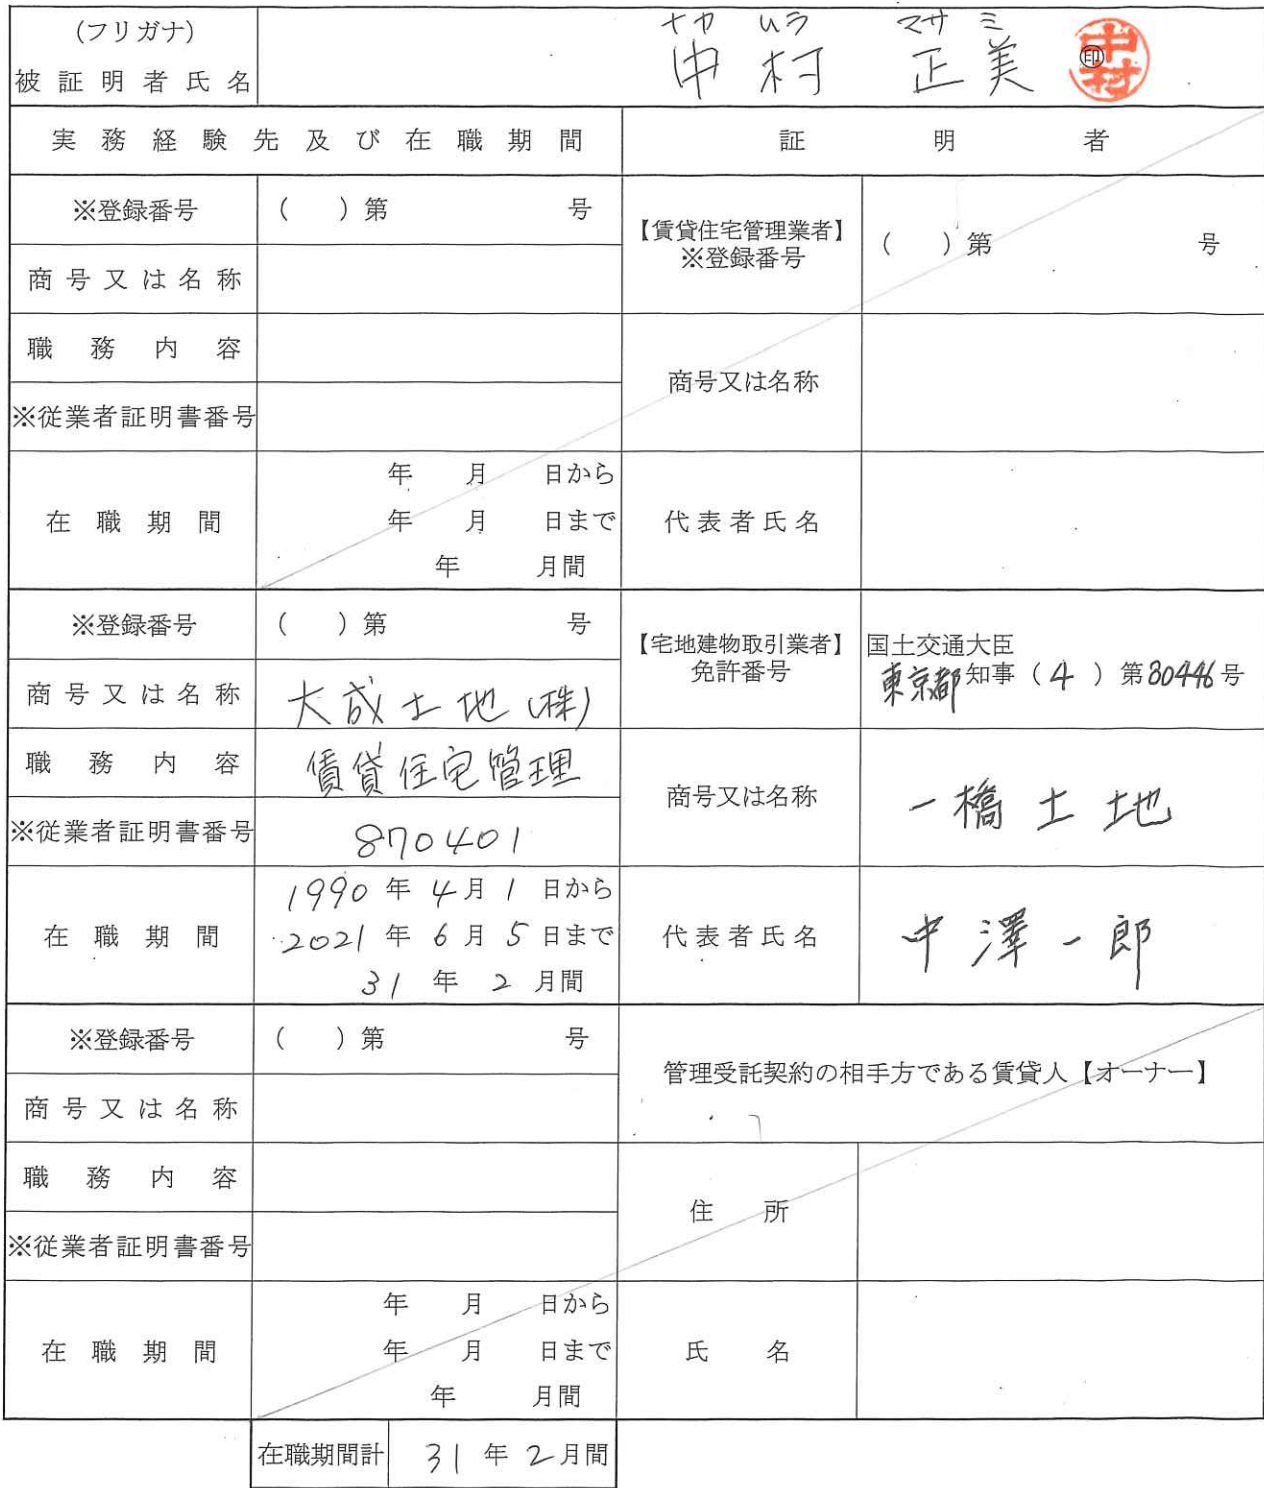 (フリガナ) ナカ ムラ マサ ミ
被証明者氏名 中村 正美 ㊞ 中村
実務経験先及び在職期間 証明者
※登録番号 ( )第 号 【賃貸住宅管理業者】 ※登録番号 ( )第 号
商号又は名称
職務内容 商号又は名称
※従業者証明書番号
在職期間 年 月 日から
年 月 日まで
年 月間
代表者氏名
※登録番号 ( )第 号 【宅地建物取引業者】 免許番号 国土交通大臣
東京都知事(4)第80446号
商号又は名称 大成土地(株)
職務内容 賃貸住宅管理 商号又は名称 一橋土地
※従業者証明書番号 870401
在職期間 1990年4月1日から
2021年6月5日まで
31年2月間
代表者氏名 中澤一郎
※登録番号 ( )第 号 管理受託契約の相手方である賃貸人【オーナー】
商号又は名称
職務内容 住所
※従業者証明書番号
在職期間 年 月 日から
年 月 日まで
年 月間
氏名
在職期間計 31年2月間